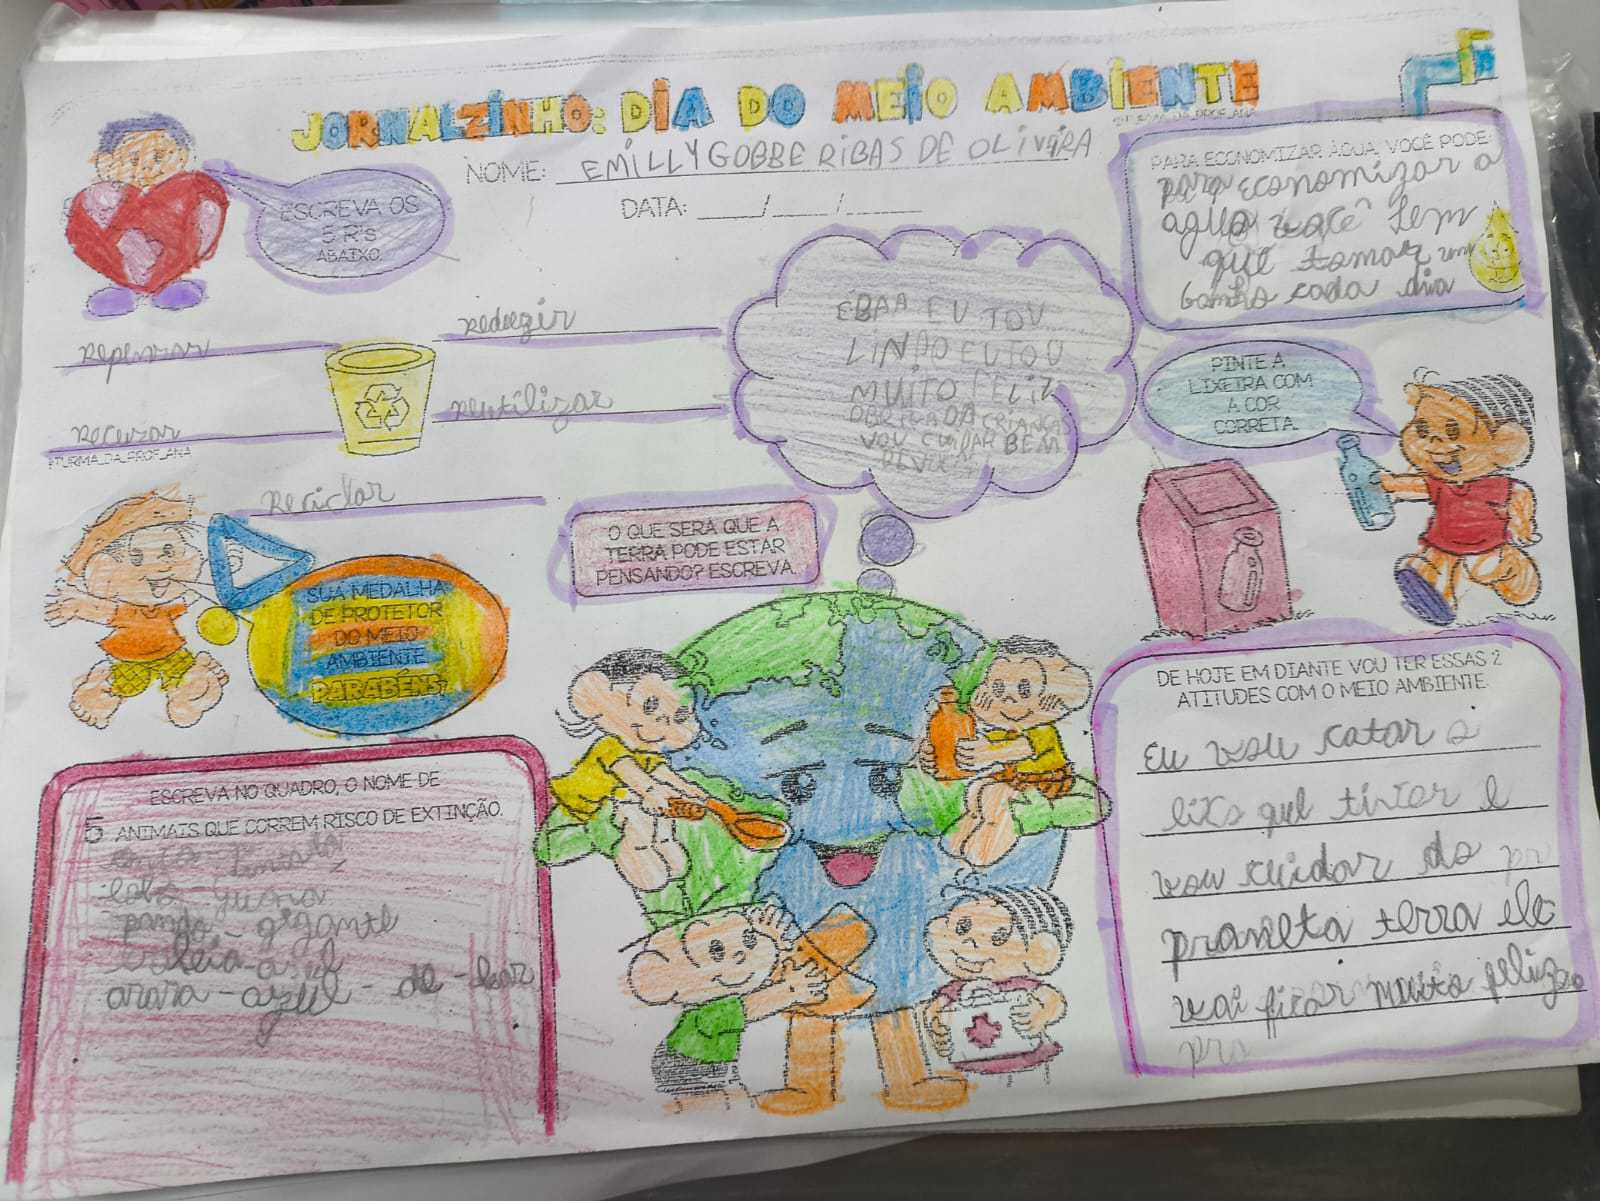 JORNALZINHO: DIA DO MEIO AMBIENTE
©TURMA_DA_PROF_ANA
NOME: EMILLY GOBBE RIBAS DE OLIVEIRA
DATA: ____/____/____
ESCREVA OS
5 R'S
ABAIXO.
reduzir
repensar
reutilizar
recuzar
©TURMA_DA_PROF_ANA
Reciclar
PARA ECONOMIZAR ÁGUA, VOCÊ PODE:
para economizar a
agua você tem
que tomar um
banho cada dia
EBAA EU TOU
LINDO EU TOU
MUITO FELIZ
OBRIGADA CRIANÇAS
VOU CUIDAR BEM
PINTE A
LIXEIRA COM
A COR
CORRETA.
O QUE SERÁ QUE A
TERRA PODE ESTAR
PENSANDO? ESCREVA.
SUA MEDALHA
DE PROTETOR
DO MEIO
AMBIENTE
PARABÉNS!
DE HOJE EM DIANTE VOU TER ESSAS 2
ATITUDES COM O MEIO AMBIENTE.
Eu vou catar o
lixo que tiver e
vou cuidar do
praneta terra ele
vai ficar muito
ESCREVA NO QUADRO, O NOME DE
5 ANIMAIS QUE CORREM RISCO DE EXTINÇÃO.
lobo-guara
panda-gigante
arara-azul-de-lear